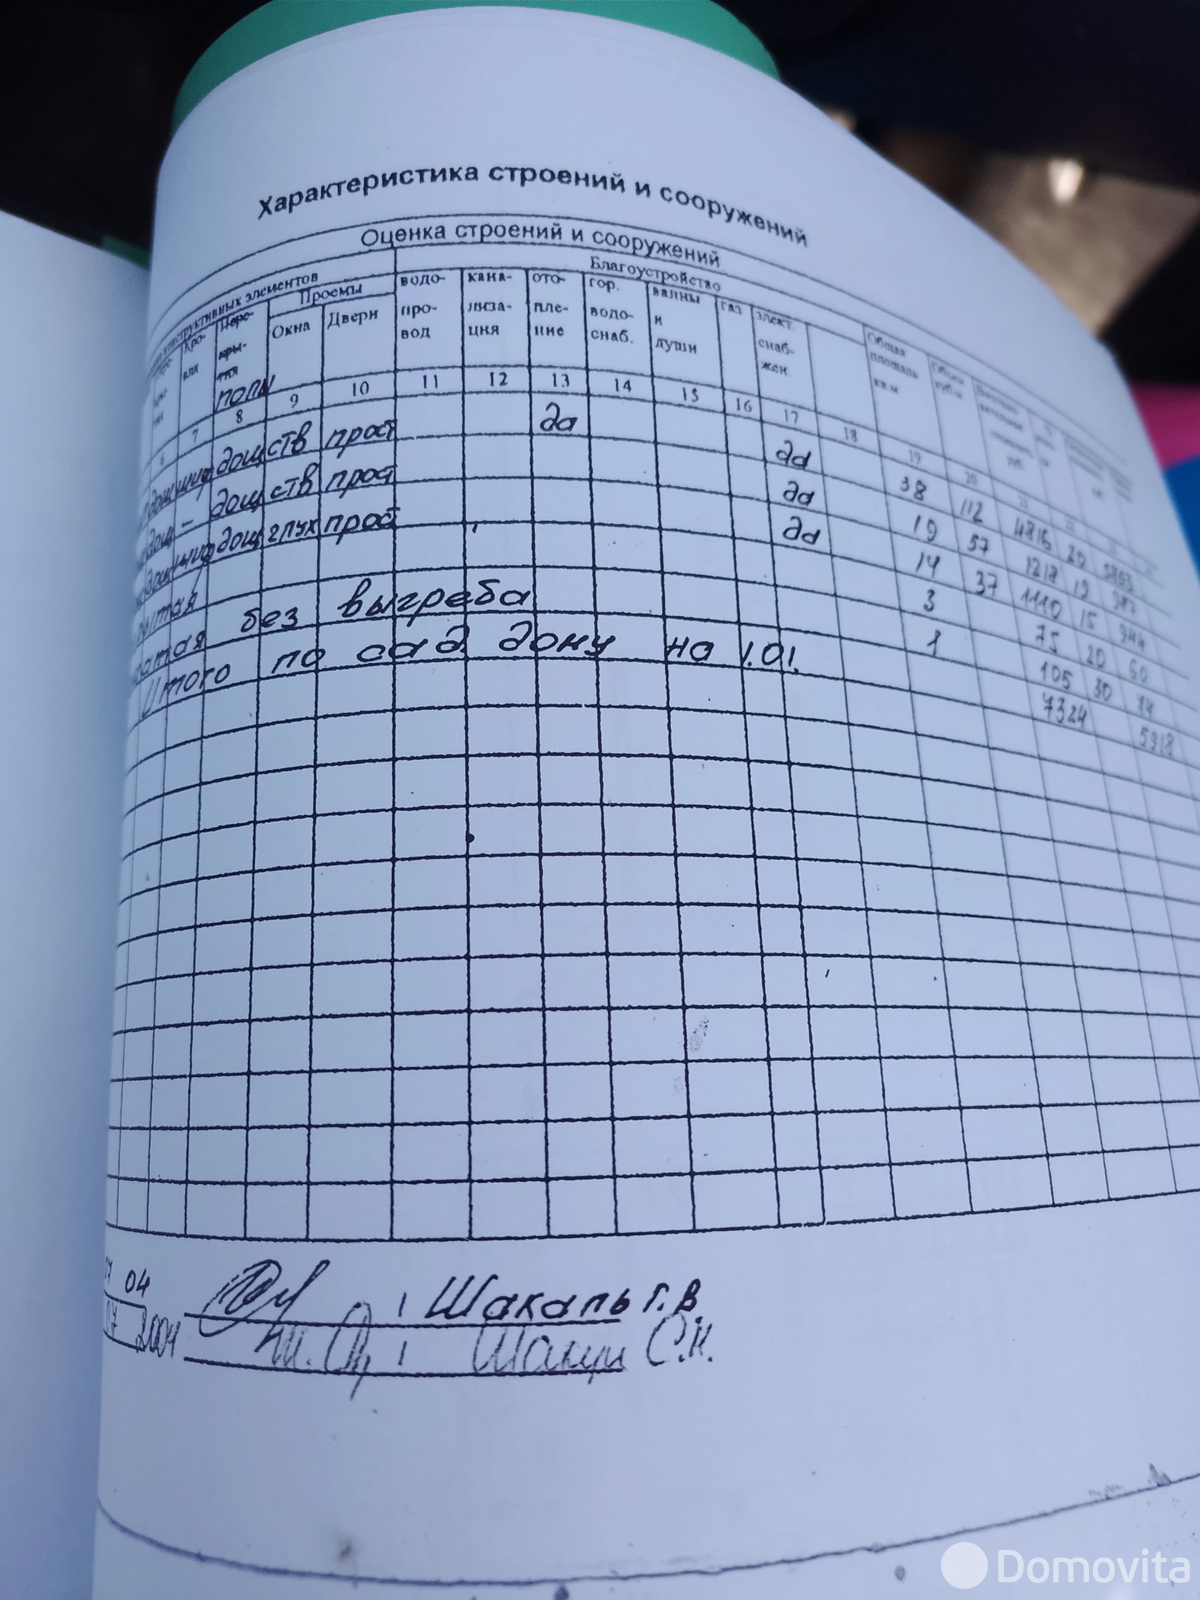 Характеристика строений и сооружений
Оценка строений и сооружений
конструктивных элементов Благоустройство
Проемы
Кро-
вли
Пере-
кры-
тия
полы
Окна Двери
водо-
про-
вод
кана-
лиза-
ция
ото-
пле-
ние
гор.
водо-
снаб.
ванны
и
души
газ
элект.
снаб-
жен.
Общая
площадь
кв.м
Объем
куб.м
6 7 8 9 10 11 12 13 14 15 16 17 18 19 20 21 22
дощ шиф дощ ств прост да да 38 112 4816 20
дощ – дощ ств прост да 19 57 1218 19 987
шиф дощ глух прост да 14 37 1110 15 944
3 75 20 60
без выгреба 1 105 30 74
Итого по сад дому на 1.01. 7324 5918
04 Шакаль Г.В
07 2004 С.Н.
Domovita